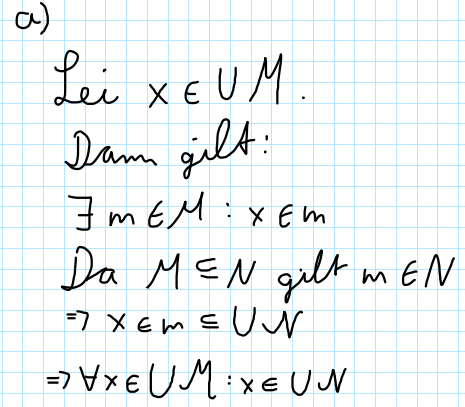 a)
Sei x ∈ ∪ M.
Dann gilt:
∃ m ∈ M : x ∈ m
Da M ⊆ N gilt m ∈ N
⇒ x ∈ m ⊆ ∪ N
⇒ ∀x ∈ ∪ M : x ∈ ∪ N